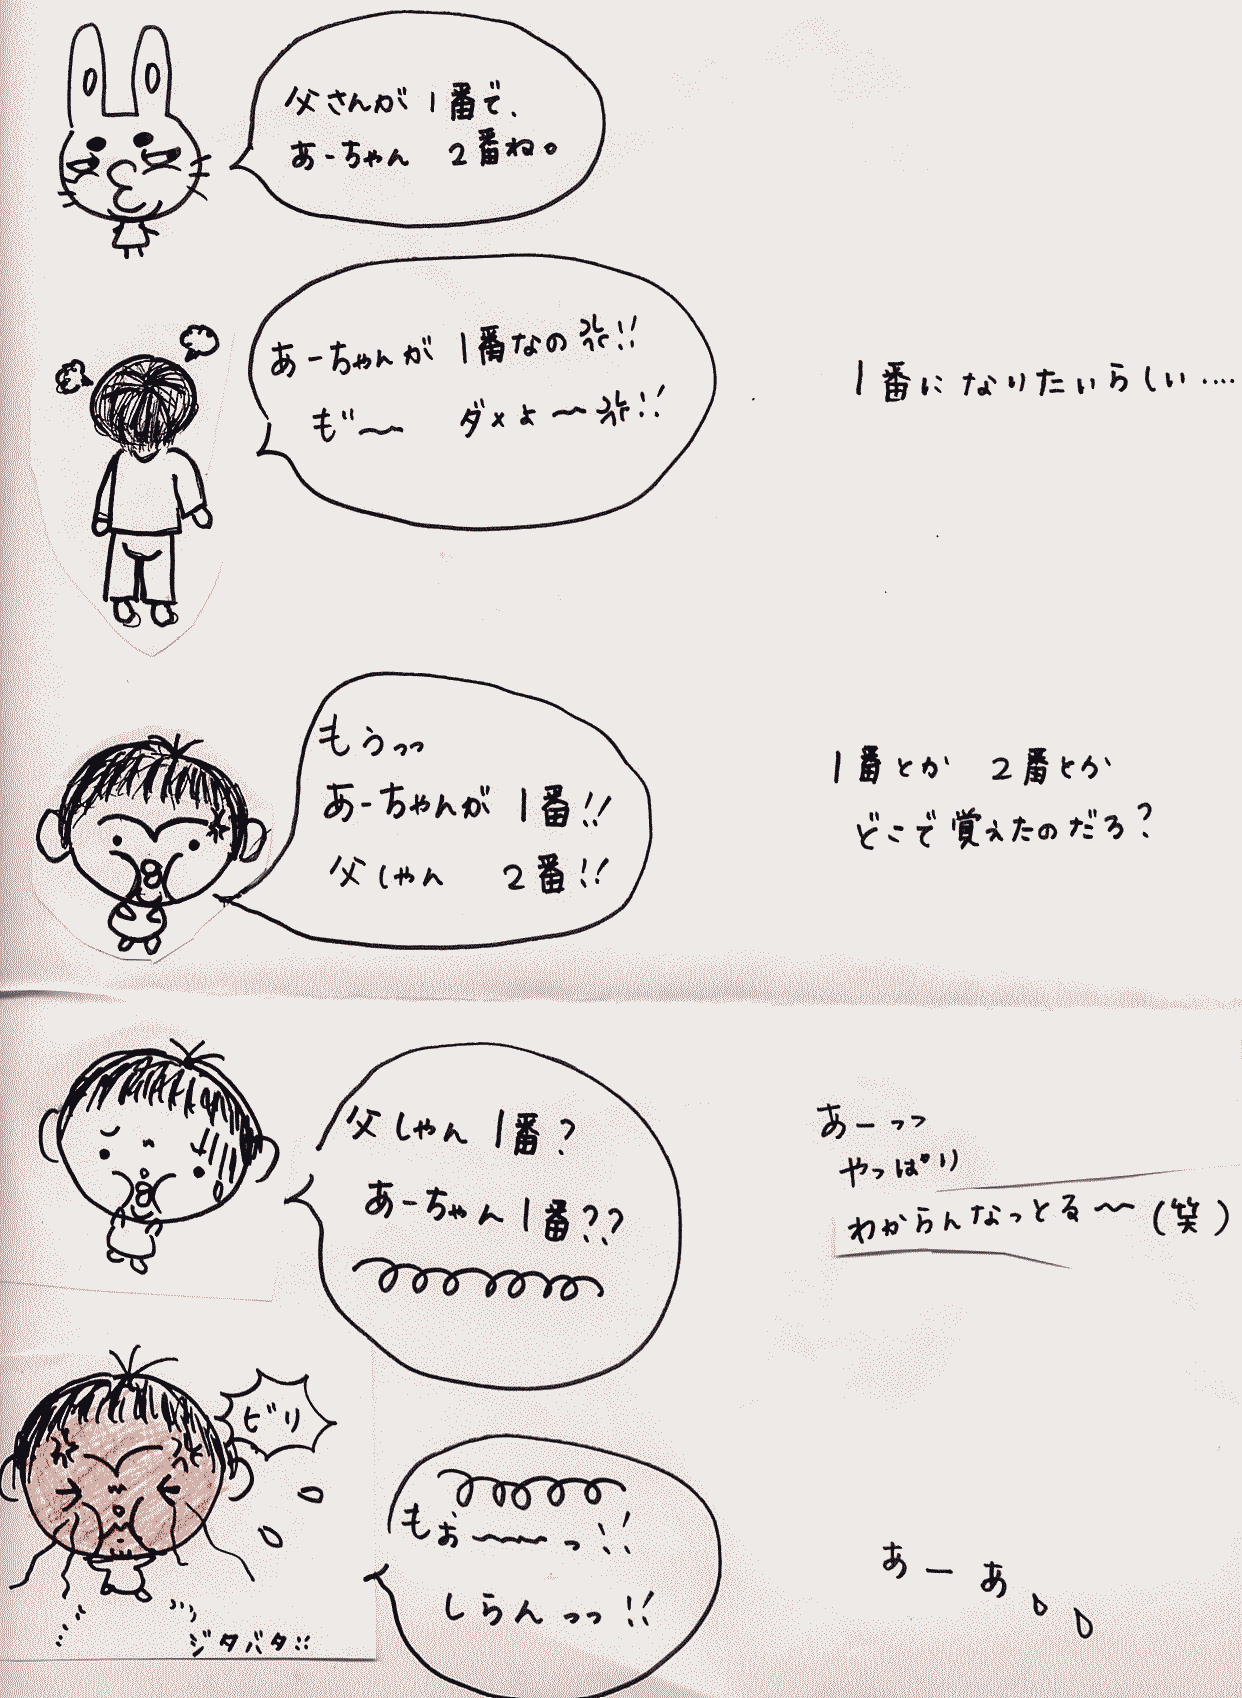 父さんが1番で、
あーちゃん 2番ね。
あーちゃんが 1番なの!!
も゛〜 ダメよ〜!!
1番になりたいらしい‥‥
もうっっ
あーちゃんが 1番!!
父しゃん 2番!!
1番とか 2番とか
どこで覚えたのだろ?
父しゃん 1番?
あーちゃん1番??
あーっっ
やっぱり
わからんなっとる〜(笑)
ビリ
もぉ〜〜っ!!
しらんっっ!!
ジタバタ!!
あーあ